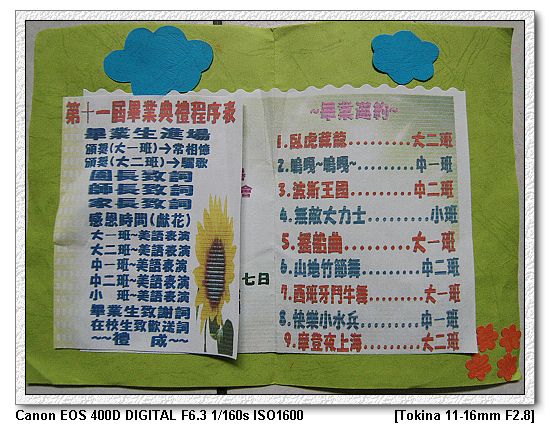 第十一屆畢業典禮程序表
畢業生進場
頒獎(大一班)→常相憶
頒獎(大二班)→驪歌
園長致詞
師長致詞
家長致詞
感恩時間(獻花)
大一班~美語表演
大二班~美語表演
中一班~美語表演
中二班~美語表演
小 班~美語表演
畢業生致謝詞
在校生致歡送詞
~~禮 成~~
會
七日
~畢業遊約~
1.臥虎藏龍........大二班
2.嗚嘎~嗚嘎~........中一班
3.波斯王國........中二班
4.無敵大力士........小班
5.搖船曲........大一班
6.山地竹節舞........中二班
7.西班牙鬥牛舞........大一班
8.快樂小水兵........中一班
9.摩登夜上海........大二班
Canon EOS 400D DIGITAL F6.3 1/160s ISO1600
[Tokina 11-16mm F2.8]